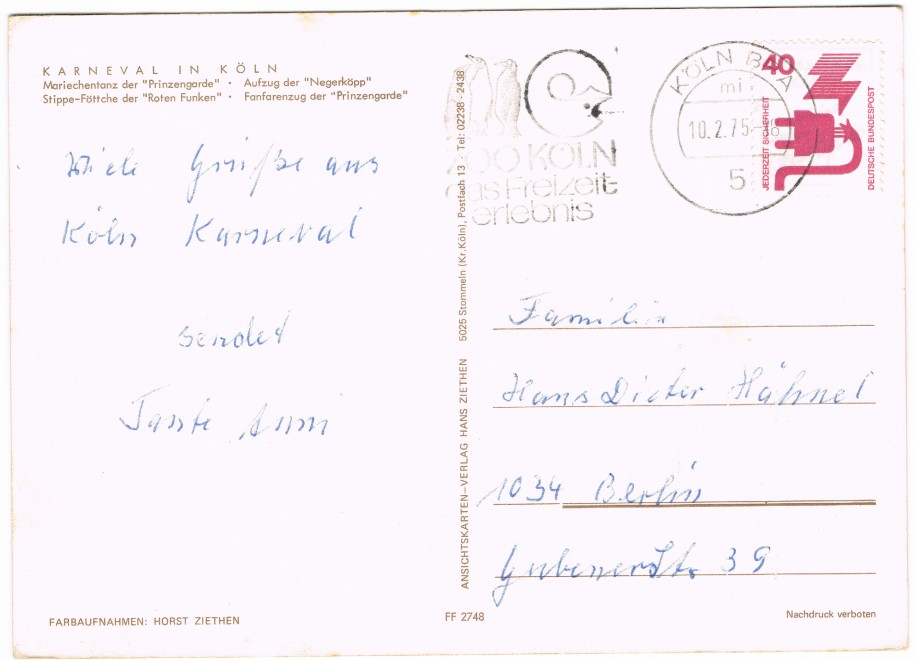 KARNEVAL IN KÖLN
Mariechentanz der "Prinzengarde" · Aufzug der "Negerköpp"
Stippe-Föttche der "Roten Funken" · Fanfarenzug der "Prinzengarde"
Viele Grüße aus
Köln Karneval
sendet
Tante Anni
FARBAUFNAHMEN: HORST ZIETHEN
ANSICHTSKARTEN-VERLAG HANS ZIETHEN 5025 Stommeln (Kr. Köln), Postfach 13 · Tel: 02238 - 2438
FF 2748
ZOO KÖLN
das Freizeit-
erlebnis
KÖLN
mi
10.2.75
5
40
JEDERZEIT SICHERHEIT
DEUTSCHE BUNDESPOST
Familie
Hans Dieter Hähnel
1034 Berlin
Gubener Str. 39
Nachdruck verboten